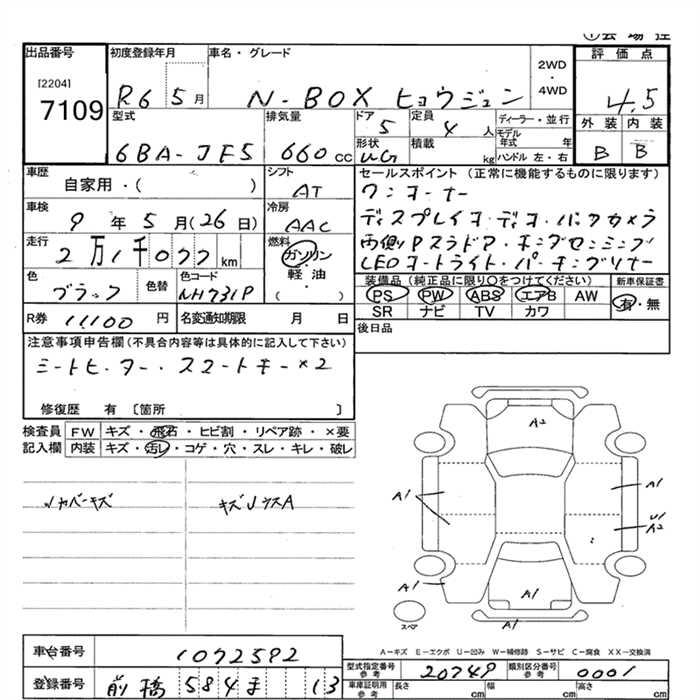 出品番号
[2204]
7109
初度登録年月
R6 5月
車名・グレード
N-BOX ヒョウジュン
2WD
・
4WD
評価点
4.5
外装 内装
B B
型式
6BA-JF5
排気量
660cc
ドア
5
定員
4人
形状
積載
kg
ディーラー・並行
モデル
年式 年
ハンドル 左・右
車歴
自家用・( )
シフト
AT
車検
9年5月(26日)
冷房
AAC
走行
2万1千077km
燃料
ガソリン
・
軽油
( )
色
ブラック
色替
色コード
NH731P
R券
11,100円
名変通知期限 月 日
セールスポイント(正常に機能するものに限ります)
ワンオーナー
ディスプレイオーディオ・バックカメラ
両側Pスラドア・ホンダセンシング
LEDオートライト・パーキングソナー
装備品(純正品に限り○をつけてください)
PS PW ABS エアB AW
SR ナビ TV カワ
新車保証書
有・無
後日品
注意事項申告欄(不具合内容等は具体的に記入して下さい)
シートヒーター・スマートキー×2
修復歴 有 〔箇所 〕
検査員
記入欄
FW キズ・飛石・ヒビ割・リペア跡・×要
内装 キズ・汚レ・コゲ・穴・スレ・キレ・破レ
キズUウスA
A2
A1
A1
U1
A2
A1
A1
A1
スペア
A-キズ E-エクボ U-凹み W-補修跡 S-サビ C-腐食 XX-交換済
車台番号
1072592
登録番号
前橋 584ま 13
型式指定番号
参考
20749
類別区分番号
参考
0001
車庫証明用
参考
長さ cm
幅 cm
高さ cm